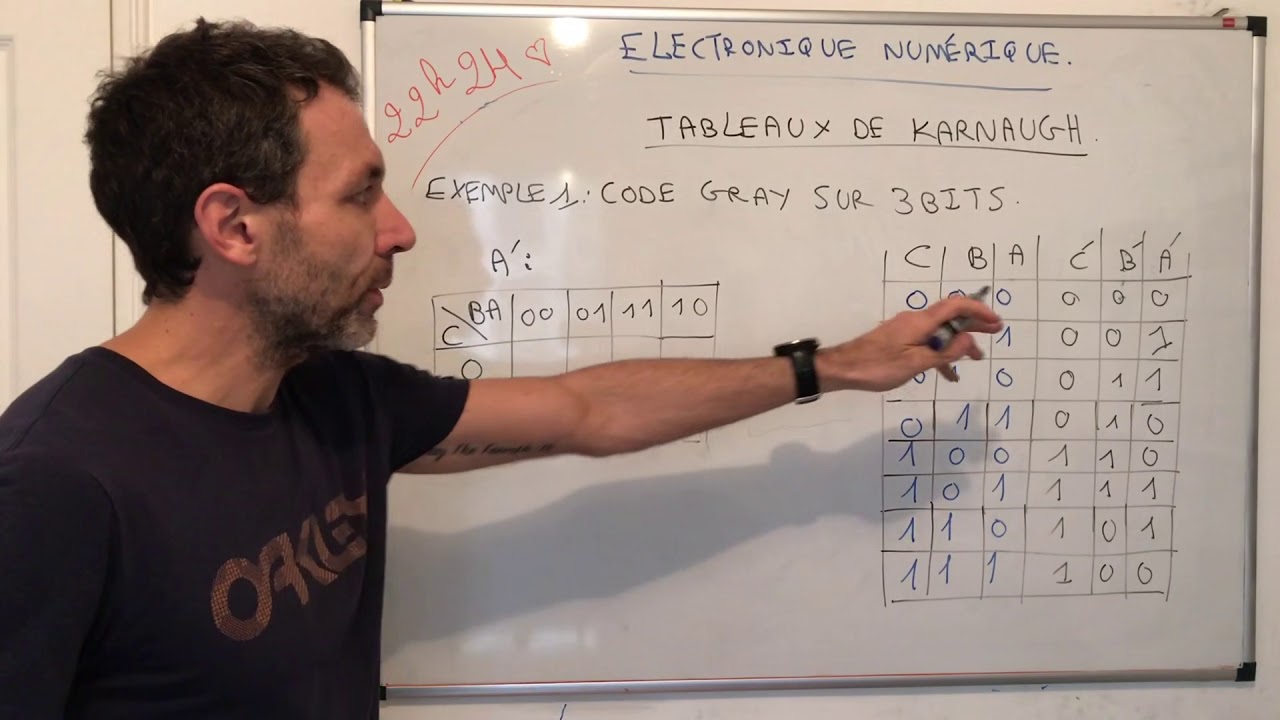 22h24 ♡
ELECTRONIQUE NUMÉRIQUE.
TABLEAUX DE KARNAUGH.
EXEMPLE 1: CODE GRAY SUR 3 BITS.
A':
C BA 00 01 11 10
0
C B A C' B' A'
0 0 0 0 0 0
1 0 0 1
0 0 0 1 1
0 1 1 0 1 0
1 0 0 1 1 0
1 0 1 1 1 1
1 1 0 1 0 1
1 1 1 1 0 0
OAKLEY